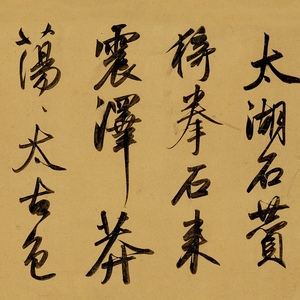 太湖石贊
将拳石来
震澤莽
蕩、太古色